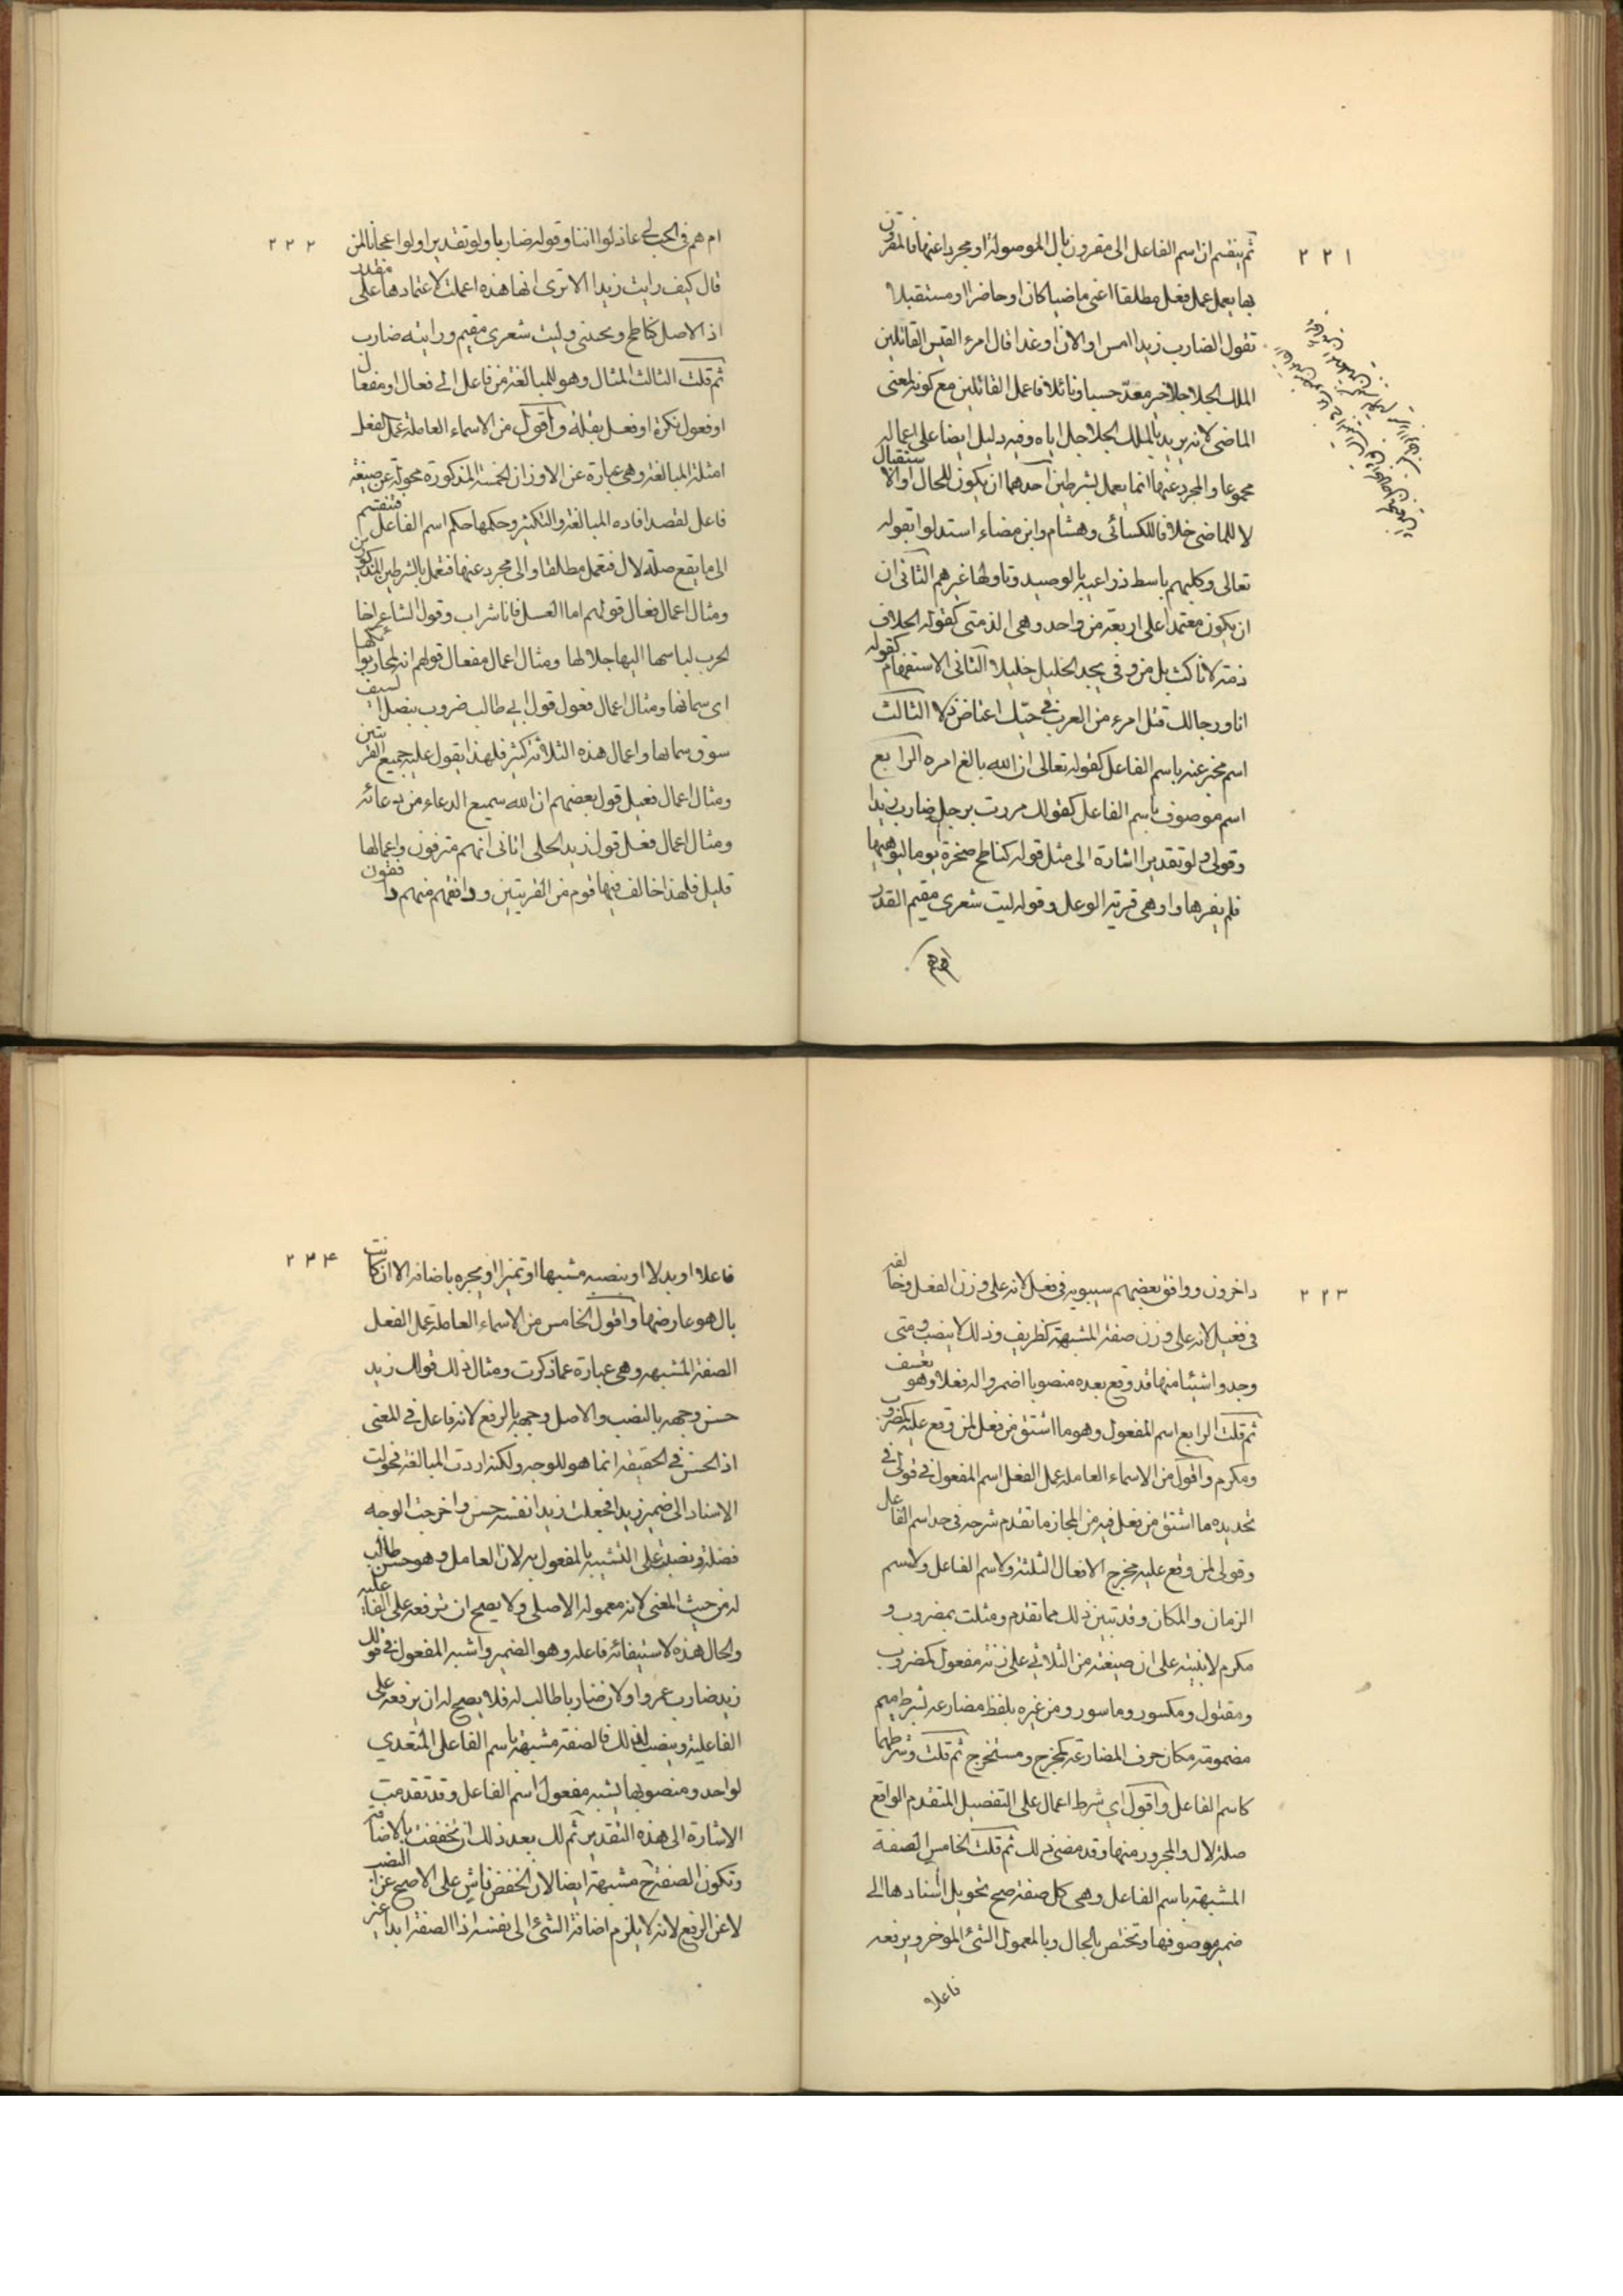 ٢٢١
ثم ينقسم ان اسم الفاعل الى مقرون بال الموصولة او مجرد اعنها فالمقرون
بها يعمل عمل فعله مطلقا اعنى ماضيا كان او حاضرا او مستقبلا
تقول الضارب زيدا امس او الان او غدا قال امرء القيس القاتلين
الملك الحلاحلا خير معدّ حسبا ونائلا فاعمل القاتلين مع كونه لمعنى
الماضى لانه يريد بالملك الحلاحل اباه وفيه دليل ايضا على اعماله
مجموعا والمجرد عنها انما يعمل بشرطين احدهما ان يكون للحال او الاستقبال
لا للماضى خلافا للكسائى وهشام وابن مضاء استدلوا بقوله
تعالى وكلبهم باسط ذراعيه بالوصيد وتاولها غيرهم الثانى ان
ان يكون معتمدا على اربعة من واحد وهى الذمتى كقوله الحلاف
ذمة لا ناكث بل من وفى يجد الخليل خليلا الثانى الاستفهام كقوله
اناو رجالك قتل امرء من العرب فى حبّك اعتاض ذلا الثالث
اسم مخبر عنه باسم الفاعل كقوله تعالى ان الله بالغ امره الرابع
اسم موصوف باسم الفاعل كقولك مررت برجل ضارب زيدا
وقولى ولو تقديرا اشارة الى مثل قوله كناطح صخرة يوما ليوهيها
فلم يضرها واوهى قرنه الوعل وقوله ليت شعرى مقيم القدر
ام هم
٢٢٢
ام هم فى الحب لى عاذلوا اننا وقوله ضاربا ولو تقديرا ولو اعجانا لمن
قال كيف رايت زيدا الا ترى انها هذه اعملت لاعتمادها على مقدر
اذ الاصل كناطح و وليت شعرى مقيم ورايته ضارب
ثم قلت الثالث المثال وهو للمبالغة من فاعل الى فعال او مفعال
او فعول بكثرة او فعيل بقلة واقول من الاسماء العاملة عمل الفعل
امثلة المبالغة وهى عبارة عن الاوزان الخمسة المذكورة محولة عن صيغة
فاعل لقصد افاده المبالغة والتكثير وحكمها حكم اسم الفاعل فتنقسم
الى ما يقع صلة لال فتعمل مطلقا والى مجرد عنها فتعمل بالشرطين المذكورين
ومثال اعمال فعال قولهم اما العسل فانا شراب وقول الشاعر اخا
الحرب لباسها اليها جلالها ومثال اعمال مفعال قولهم انه لمنحار بوائكها
اى سمانها ومثال اعمال فعول قول ابى طالب ضروب بنصل السيف
سوق سمانها واعمال هذه الثلاثة كثير فلهذا يقول عليه جميع القر يتين
ومثال اعمال فعيل قول بعضهم ان الله سميع الدعاء من دعائه
ومثال اعمال فعل قول زيد اتانى انهم مزقون واعمالها
قليل فلهذا خالف فيها قوم من الفريتين ووافقهم منهم وافقون
٢٢٣
داخرون ووافق بعضهم سيبويه فى فعل لانه على وزن الفعل وخالفه
فى فعيل لانه على وزن صفة المشبهة كظريف وذلك لا ينصب ومتى
وجدوا شيئا منها قد وقع بعده منصوبا اضمروا له فعلا وهو تعسف
ثم قلت الرابع اسم المفعول وهو ما اشتق من فعل لمن وقع عليه كمضروب
ومكرم واقول من الاسماء العاملة عمل الفعل اسم المفعول فى قولى فى
تحديده ما اشتق من فعل فيه من المجاز ما تقدم شرحه فى حد اسم الفاعل
وقولى لمن وقع عليه مخرج الافعال الثلثة ولاسم الفاعل ولاسم
الزمان والمكان وقد تبين ذلك مما تقدم ومثلت بمضروب و
مكرم لانبيه على ان صيغته من الثلاثى على زنة مفعول كمضروب
ومقتول ومكسور وماسور ومن غيره بلفظ مضارعه بشرط ميم
مضمومة مكان حرف المضارعة كمخرج ومستخرج ثم قلت وشرطهما
كاسم الفاعل واقول اى شرط اعمال على التفصيل المتقدم الواقع
صلة لال والمجرور منها وقد مضى ذلك ثم قلت الخامس الصفة
المشبهة باسم الفاعل وهى كل صفة صح تحويل اسنادها الى
ضمير موصوفها وتختص بالحال وبالمعمول الشئ الموخر ويرفعه
فاعلا
٢٢۴
فاعلا او بدلا او ينصبه مشبها او تميزا او يجره باضافه الا ان كانت
بال هو عارضها واقول الخامس من الاسماء العاملة عمل الفعل
الصفة المشبهه وهى عبارة عما ذكرت ومثال ذلك قولك زيد
حسن وجهه بالنصب والاصل وجهه بالرفع لانه فاعل فى المعنى
اذ الحسن فى الحقيقة انما هو للوجه ولكنه اردت المبالغة فحولت
الاسناد الى ضمير زيد فجعلت زيدا نفسه حسن واخرجت الوجه
فضلة ونصبته على التشبيه بالمفعول به لان العامل وهو حسن طالب
له من حيث المعنى لانه معموله الاصلى ولا يصح ان ترفعه على الفاعليه
والحال هذه لاستيفائه فاعله وهو الضمير واشبه المفعول فى قولك
زيد ضارب عمروا ولان ضاربا طالب له فلا يصح له ان يرفعه على
الفاعلية وينصب لذلك فالصفة مشبهة باسم الفاعل المتعدي
لواحد ومنصوبها يشبه مفعول اسم الفاعل وقد تقدمت
الاشارة الى هذه التقدير ثم لك بعد ذلك ان تخفضه بالاضافة
وتكون الصفة ح مشبهة ايضا لان الخفض ناش على الاصح عن النصب
لا عن الرفع لانه لا يلزم اضافة الشئ الى نفسه اذ الصفة ابدا عين